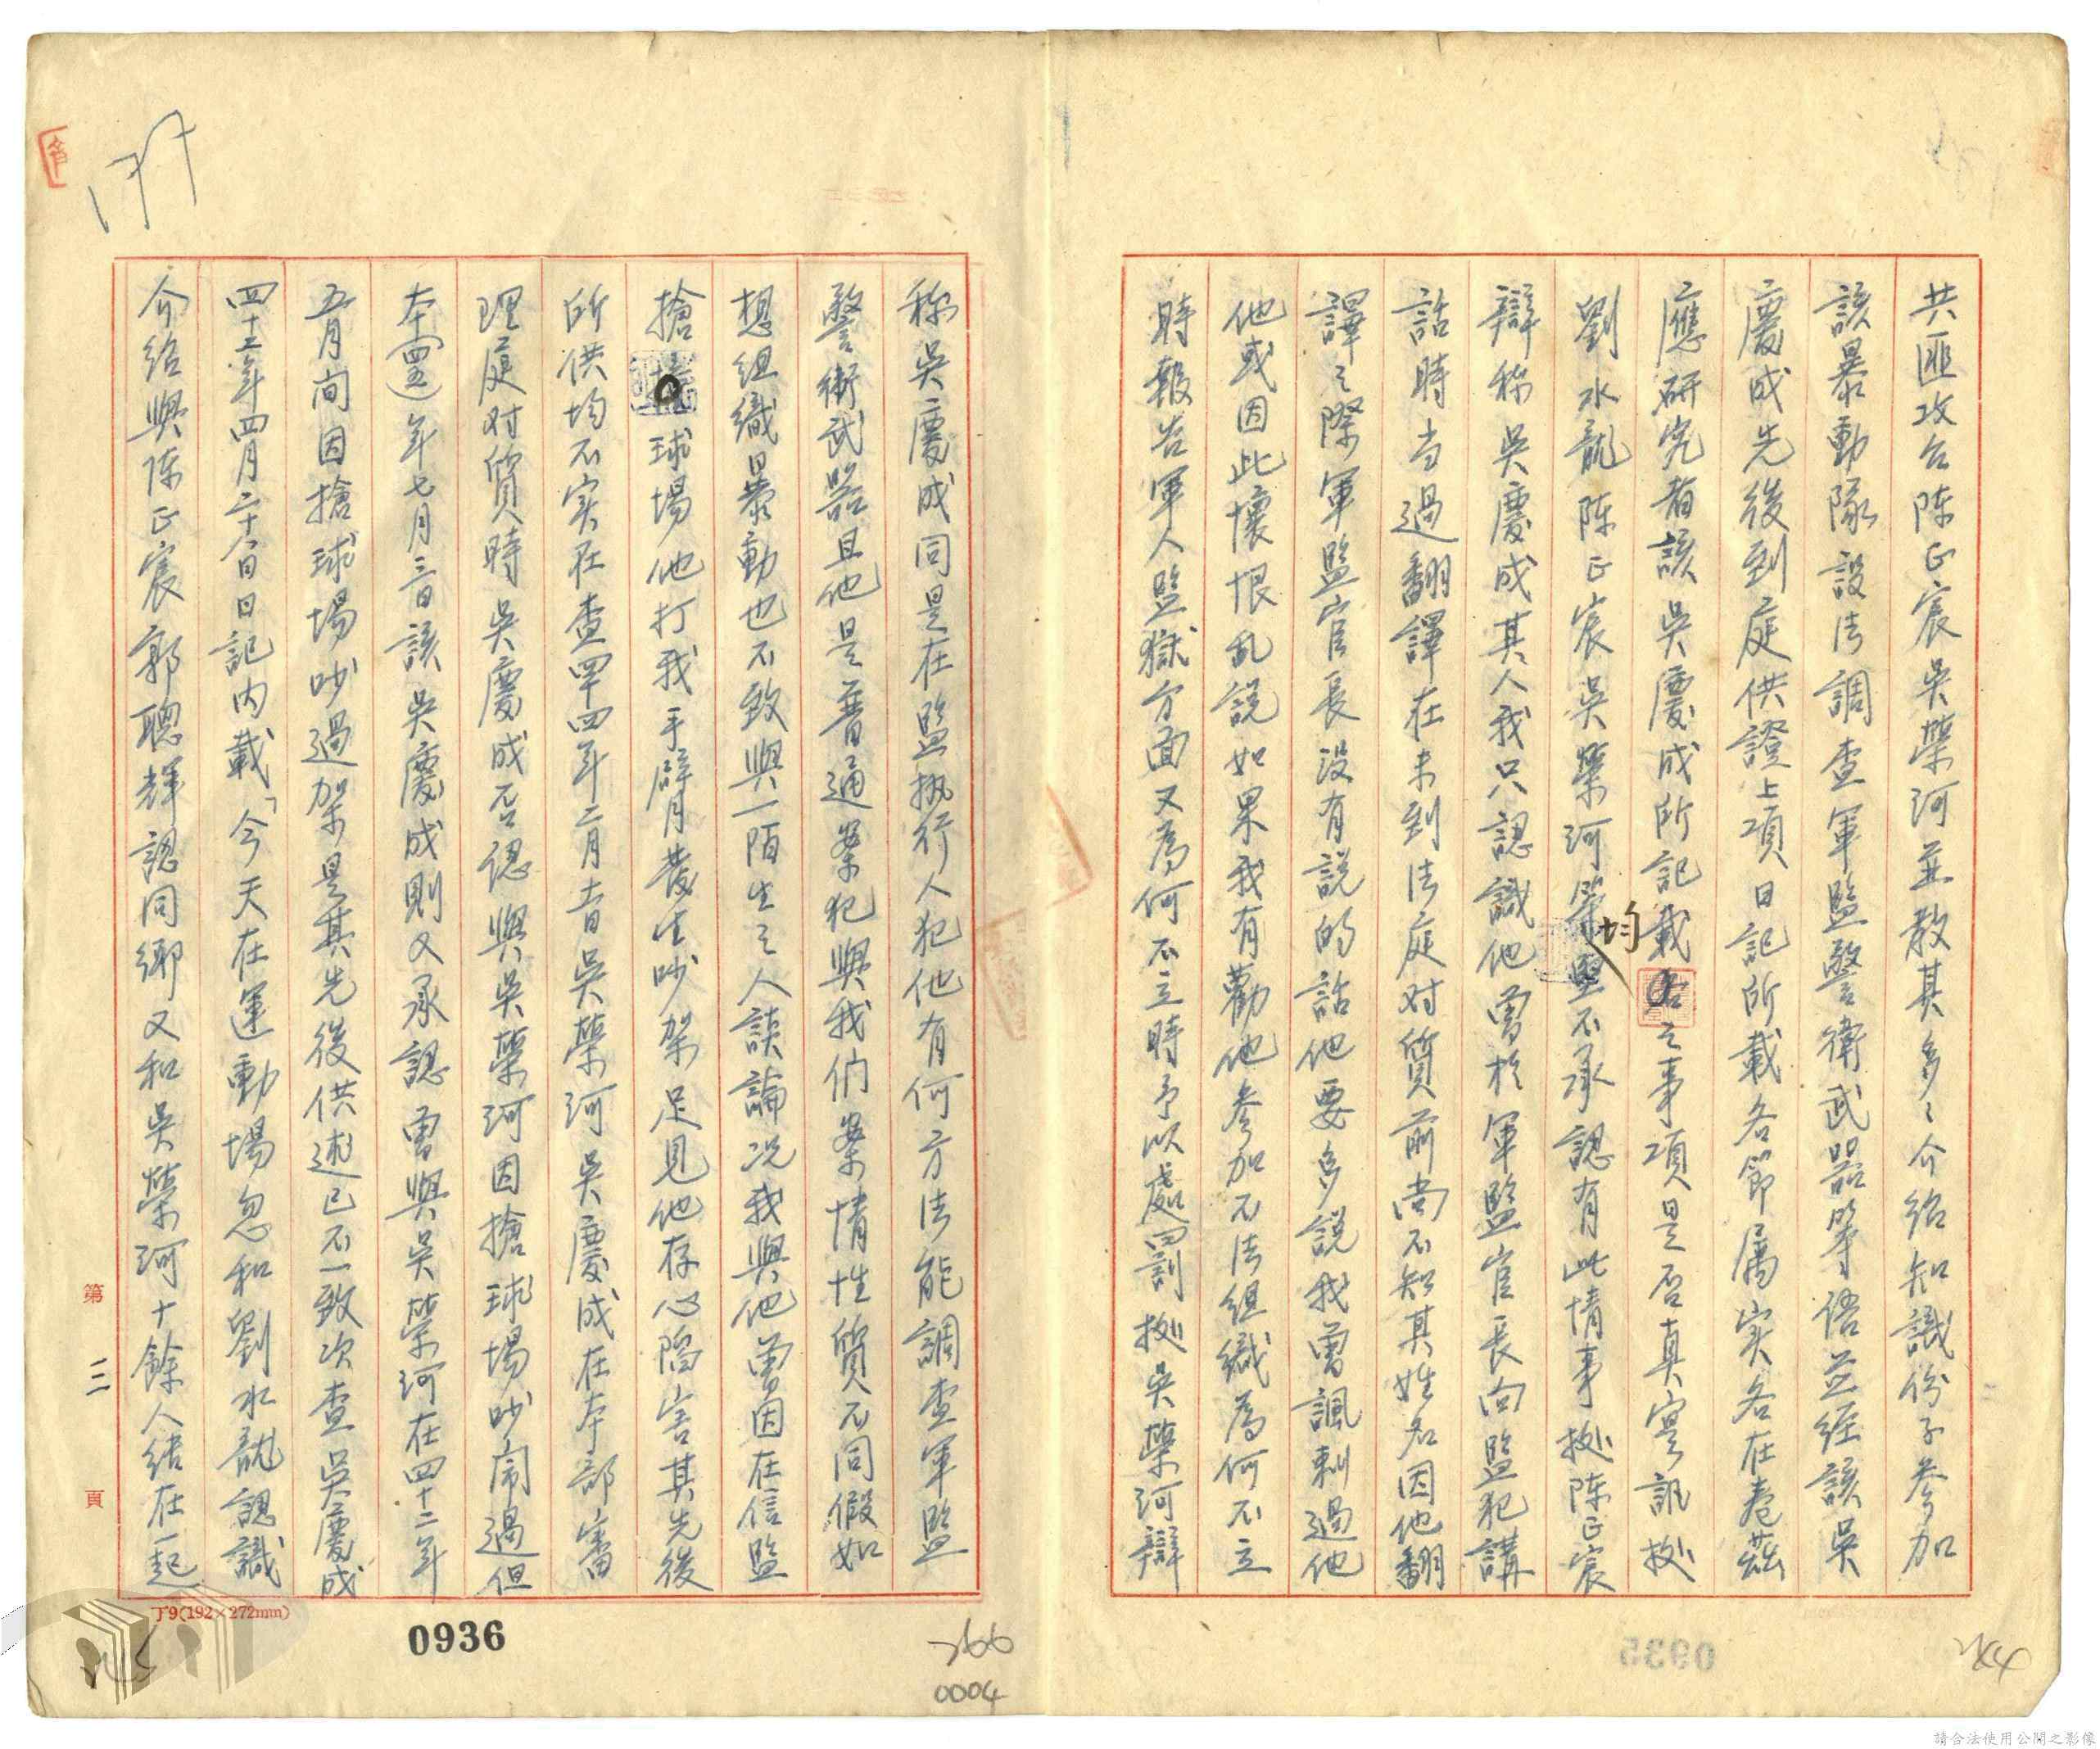 共匪攻台陈正宸吳榮河並教其多々介绍知識份子參加
該暴動隊設法調查軍監警衛武器等語並经該吳
慶成先後到庭供證上項日記所載各節属实各在卷茲
應研究者該吳慶成所記載之事項是否真實訊拠
劉水龍陈正宸吳榮河均堅不承認有此情事拠陈正宸
辯称吳慶成其人我只認識他曾於軍監官長向監犯講
話時当過翻譯在未到法庭对質前尚不知其姓名因他翻
譯之際軍監官長没有説的話他要多說我曾諷刺過他
他或因此懷恨乱說如果我有勸他參加不法组織為何不立
時報告軍人監獄方面又為何不立時予以處罰拠吳榮河辯
称吳慶成同是在監执行人犯他有何方法能調查軍監
警衛武器且他是普通案犯與我们案情性質不同假如
想组織暴動也不致與一陌生之人談論况我與他曾因在信監
搶球場他打我手臂發生吵架足見他存心陷害其先後
所供均不实在查四十四年二月十一日吳榮河吳慶成在本部審
理庭对質時吳慶成否認與吳榮河因搶球場吵鬧過但
本(四四)年七月三日該吳慶成則又承認曾與吳榮河在四十二年
五月间因搶球場吵過架是其先後供述已不一致次查吳慶成
四十二年四月二十六日日記内載「今天在運動場忽和劉水龍認識
介绍與陈正宸郭聰輝認同鄉又和吳榮河十餘人結在一起
第 二 頁
丁9(192×272mm)
0936
0935
766
0004
744
請合法使用公開之影像